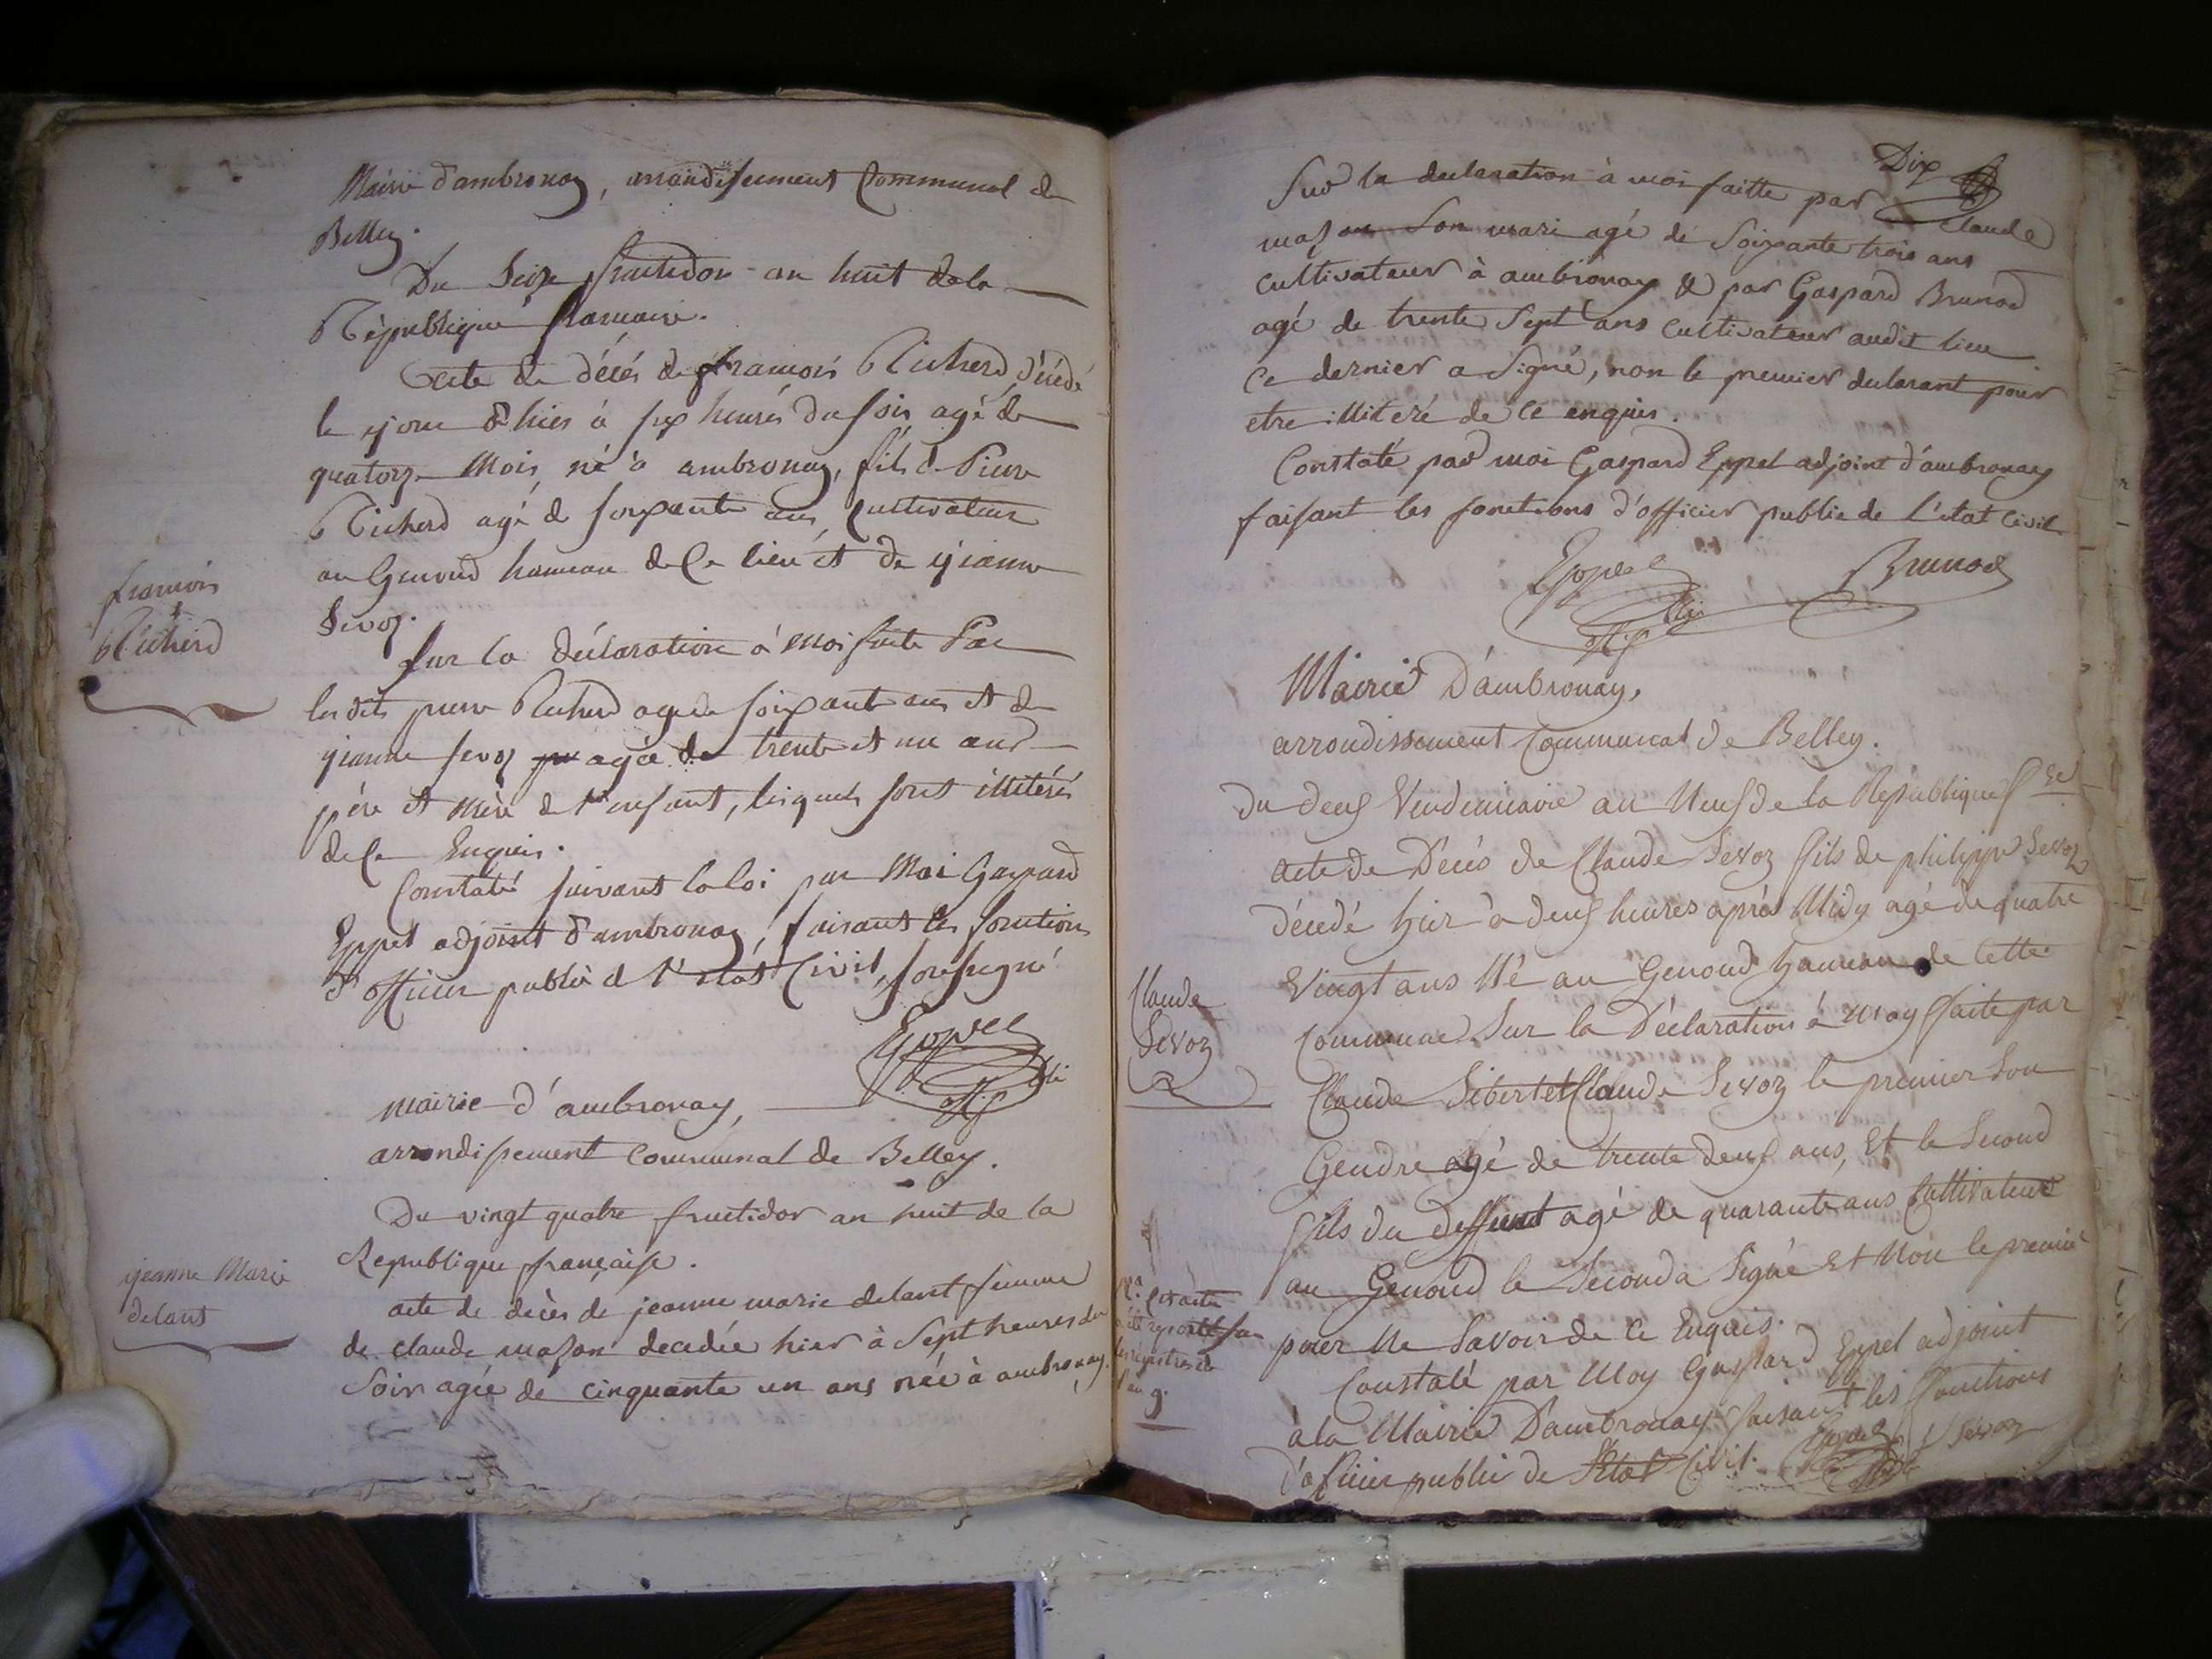 Mairie d'ambronay, arrondissement Communal de
Belley.
Du Seize fructidor an huit de la
République francaise.
Acte de décés de francois Richerd décédé
le jour d'hier à six heures du soir agé de
quatorze Mois, né à ambronay, fils de Pierre
Richerd agé de soixante ans, cultivateur
au Genoud hameau de Ce lieu et de jeanne
Sevoz.
francois
Richerd
sur la déclaration à moi faite Par
les dits pierre Richerd agé de soixante ans et de
jeanne sevoz agée de trente et un ans
père et mère de l'enfant, lesquels sont illitérés
de Ce Enquis.
Constaté suivant la loi par Moi Gaspard
Eppel adjoint d'ambronay, faisant les fonctions
d'officier public de l'état Civil, soussigné
Eppel
mairie d'ambronay,
arrondissement communal de Belley.
Du vingt quatre fructidor an huit de la
Republique française.
jeanne Marie
delant
acte de décès de jeanne marie delant femme
de claude mazon decedée hier à Sept heures du
Soir agée de cinquante un ans née à ambronay.
Dix
Sur la declaration à moi faitte par Claude
mazon Son mari agé de Soixante trois ans
cultivateur à ambronay & par Gaspard Brunod
agé de trente Sept ans cultivateur audit lieu
Ce dernier a Signé, non le premier declarant pour
etre illiteré de ce enquis.
Constaté par moi Gaspard Eppel adjoint d'ambronay
faisant les fonctions d'officier public de L'etat Civil
Eppel Brunod
Mairie D'ambronay,
arrondissement Communal de Belley.
du deux Vendemiaire an Neuf de la Republique fse
acte de Décés de Claude Sevoz fils de philippe Sevoz
décédé hier à deux heures après Midy agé de quatre
Vingt ans Né au Genoud hameau de Cette
Claude
Sevoz
Commune Sur la Déclaration à moy faite par
Claude Sibert et Claude Sevoz le premier Son
Gendre agé de trente deux ans, Et le Second
fils du deffunt agé de quarante ans Cultivateurs
au Genoud le Second a Signé Et Non le premier
pour Ne Savoir de Ce Enquis.
Na. Cet acte
a été reporté sur
le registre de
l'an 9.
Constaté par Moy Gaspard Eppel adjoint
à la Mairie D'ambronay faisant les fonctions
d'officier public de l'Etat Civil. Eppel C Sevoz